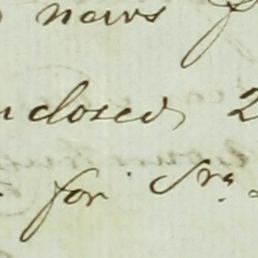 news f
nclosed 2
for Srs